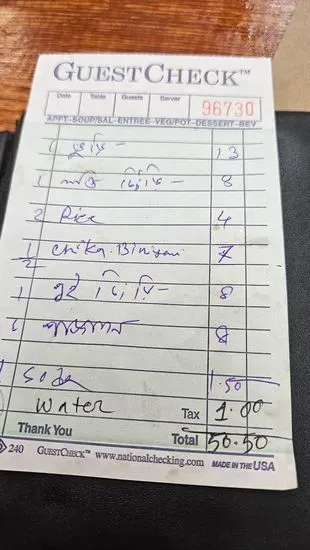 GUESTCHECK™
Date Table Guests Server
96730
APPT-SOUP/SAL-ENTREE-VEG/POT-DESSERT-BEV
1 13
1 8
2 Rice 4
1/2 Chika. Biriyani 7
1 8
1 8
1 Soda 1.50
Water Tax 1.00
Thank You Total 50.50
240 GUESTCHECK™ www.nationalchecking.com MADE IN THE USA